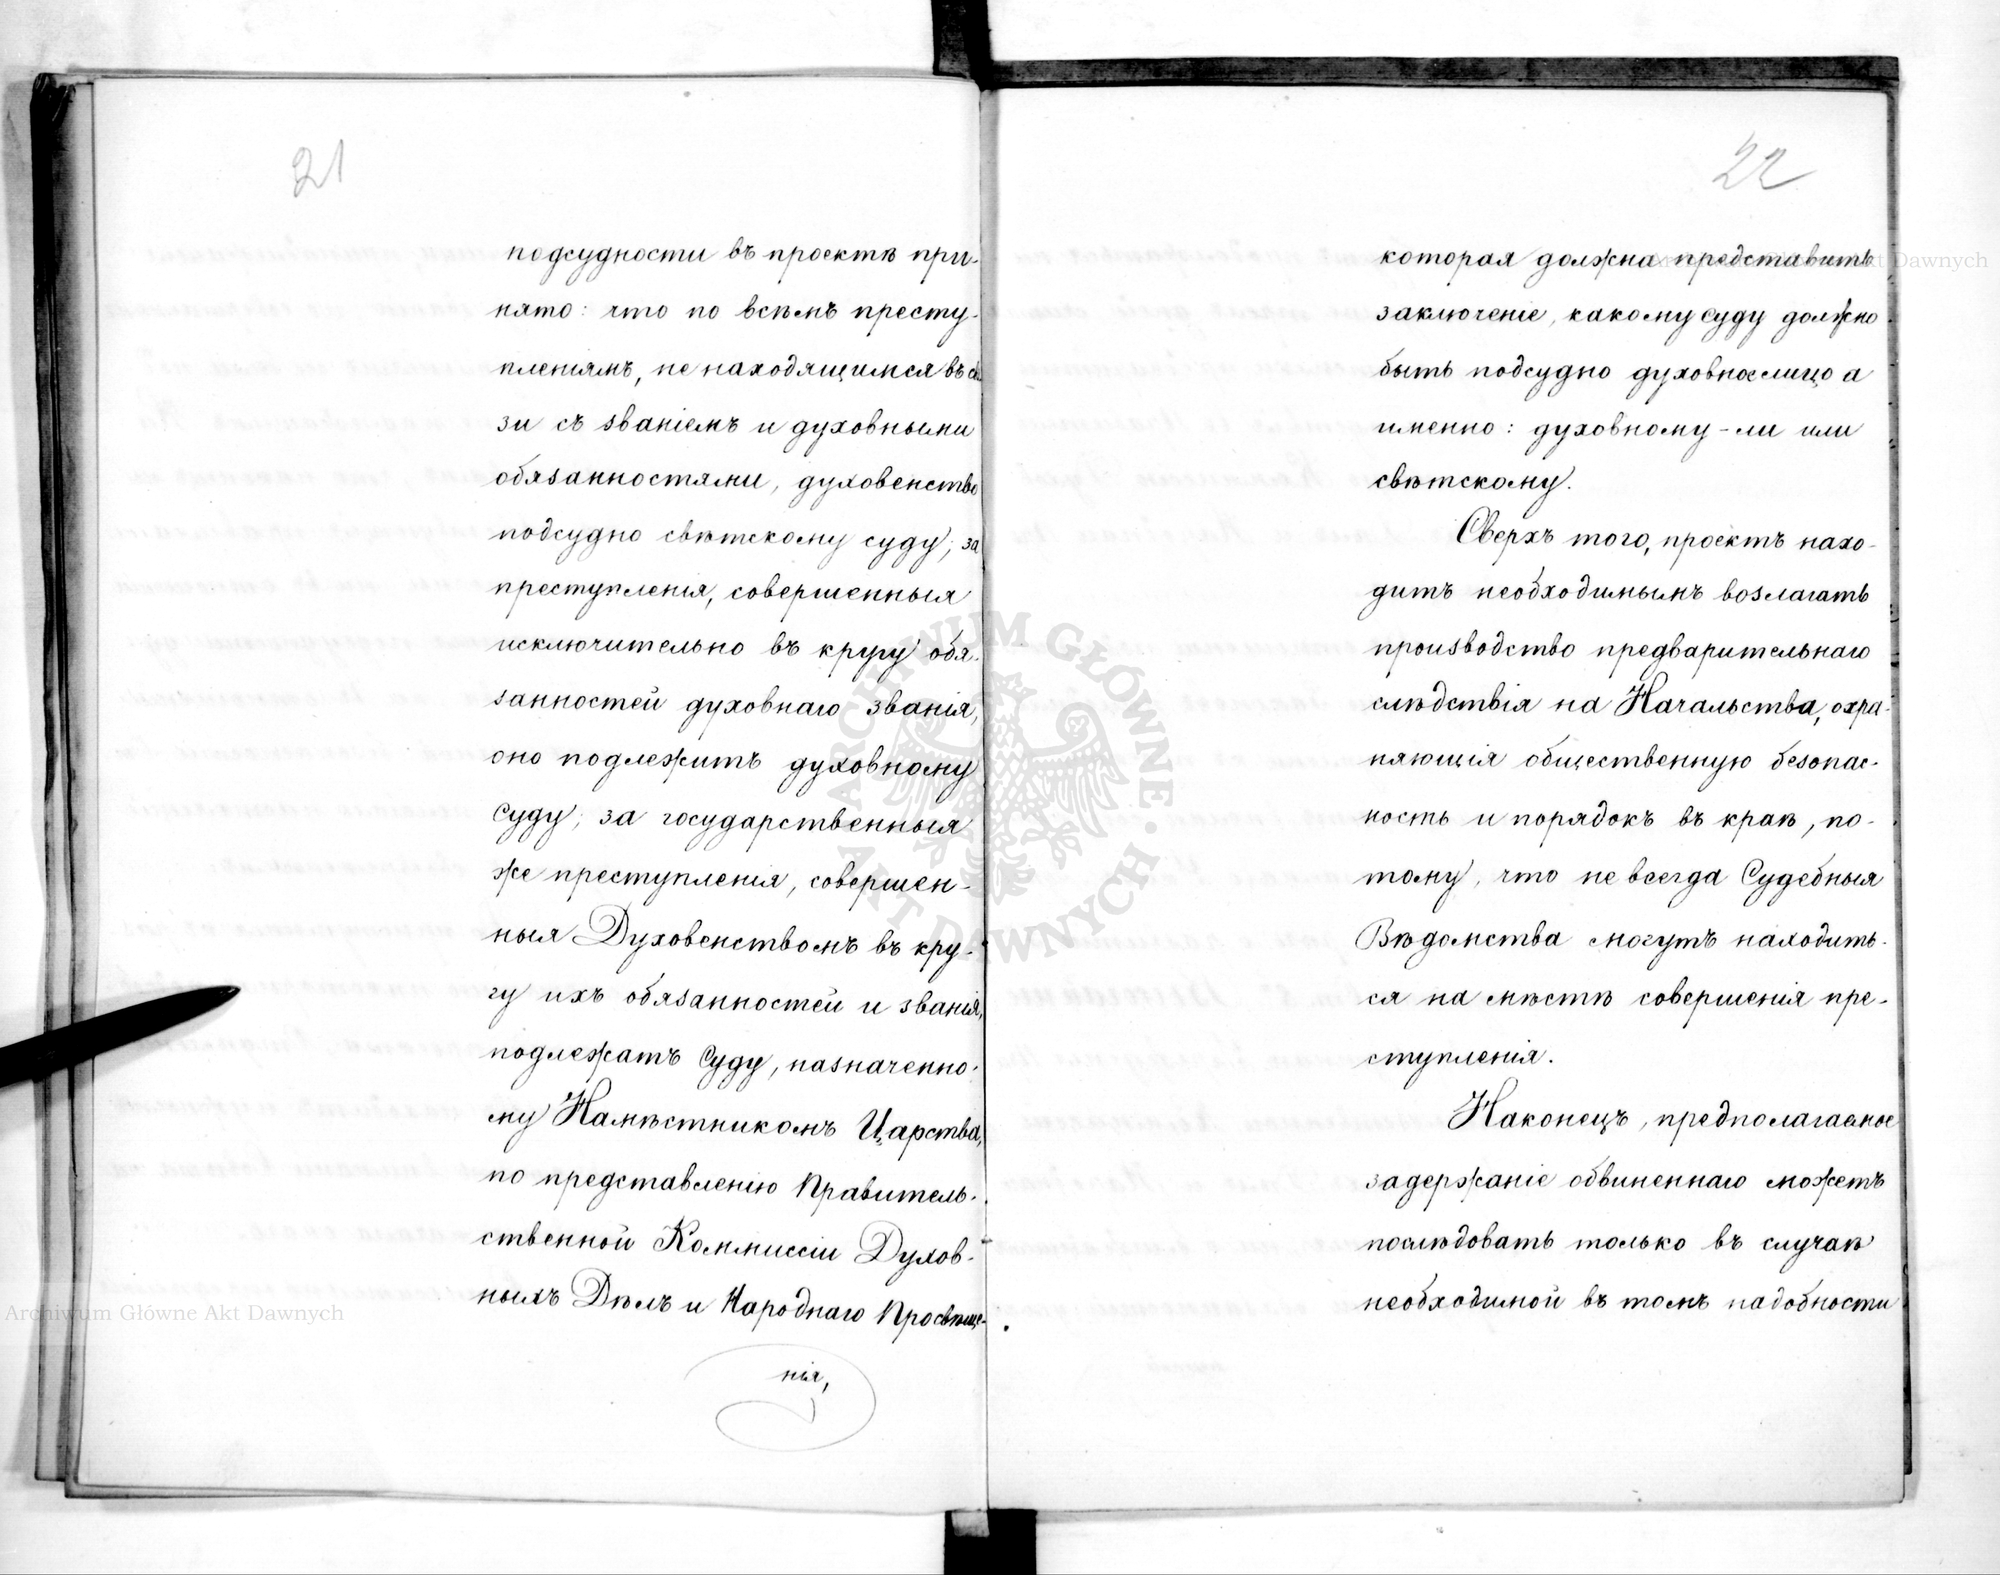 21
подсудности въ проектѣ при-
нято: что по всѣмъ престу-
пленіямъ, не находящимся въ свя-
зи съ званіемъ и духовными
обязанностями, духовенство
подсудно свѣтскому суду; за
преступленія, совершенныя
исключительно въ кругу обя-
занностей духовнаго званія,
оно подлежитъ духовному
суду; за государственныя
же преступленія, совершен-
ныя Духовенствомъ въ кру-
гу ихъ обязанностей и званія,
подлежатъ Суду, назначенно-
му Намѣстникомъ Царства,
по представленію Правитель-
ственной Коммиссіи Духов-
ныхъ Дѣлъ и Народнаго Просвѣще-
нія,
22
которая должна представить
заключеніе, какому суду должно
быть подсудно духовное лицо а
именно: духовному-ли или
свѣтскому.
Сверхъ того, проектъ нахо-
дитъ необходимымъ возлагать
производство предварительнаго
слѣдствія на Начальства, охра-
няющія общественную безопас-
ность и порядокъ въ краѣ, по-
тому, что не всегда Судебныя
Вѣдомства могутъ находить-
ся на мѣстѣ совершенія пре-
ступленія.
Наконецъ, предполагаемое
задержаніе обвиненнаго можетъ
послѣдовать только въ случаѣ
необходимой въ томъ надобности
ARCHIWUM GŁÓWNE AKT DAWNYCH
Archiwum Główne Akt Dawnych
Akt Dawnych